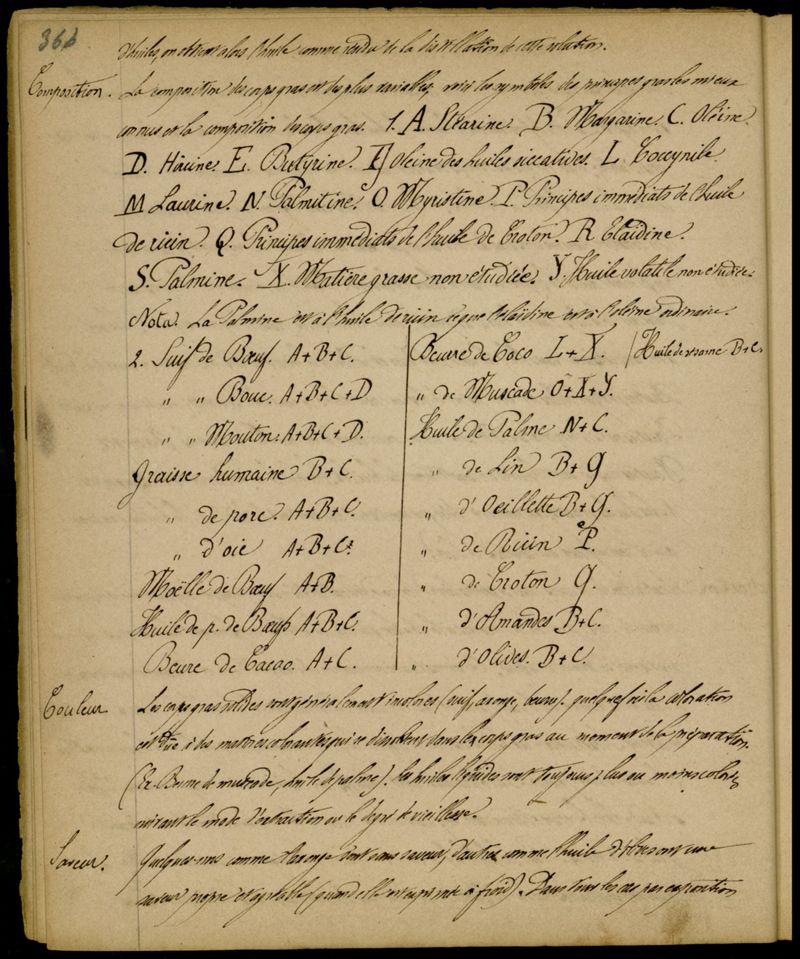 366
d'huiles, on obtient alors l'huile comme résidu de la distillation de cette solution.
Composition. La composition des corps gras est des plus variables; voici les symboles des principes gras les mieux
connus et la composition des corps gras. 1. A. Stéarine. B. Margarine. C. Oléine.
D. Hircine. E. Butyrine. Oléine des huiles siccatives. L. Coccynile.
M Laurine. N. Palmitine. O. Myristine. P. Principes immédiats de l'huile
de ricin. Q. Principes immédiats de l'huile de Croton. R Elaïdine.
S. Palmine. X. Matière grasse non étudiée. Y. Huile volatile non étudiée.
Nota. La Palmine est à l'huile de ricin ce que l'élaïdine est à l'oléine ordinaire.
2. Suif de Bœuf. A+B+C.
" " Bouc. A+B+C+D
" " Mouton. A+B+C+D.
Graisse humaine B+C.
" de porc. A+B+C.
" d'oie A+B+C.
Moëlle de Bœuf A+B.
Huile de p. de Bœufs A+B+C.
Beure de Cacao. A+C.
Beurre de Coco L+X. / Huile de sésame B+C.
" de Muscade O+X+Y.
Huile de Palme N+C.
" de Lin B+G
" d'Oeillette B+G.
" de Ricin P.
" de Croton Q.
" d'Amandes B+C.
" d'Olives. B+C.
Couleur Les corps gras solides sont généralement incolores (suif, axonge, beurre). quelquefois la coloration
est due à des matières colorantes qui se dissolvent dans les corps gras au moment de la préparation.
(Ex. Beurre de muscade, huile de palme). Les huiles liquides sont toujours plus ou moins colorées
suivant le mode d'extraction ou le degré de vieillesse.
Saveur. Quelques-uns comme l'axonge sont sans saveur, d'autres comme l'huile d'olives ont une
saveur propre et agréable (quand elle est exprimée à froid). Dans tous les cas par exposition